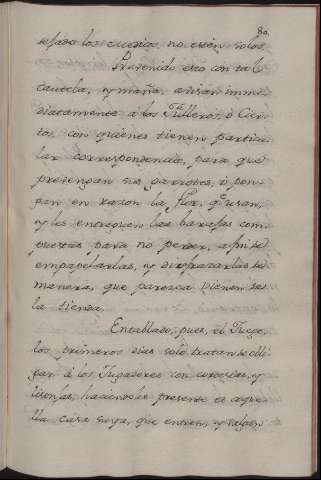 80.
sejado los cuerpos no estén solos.
Prevenido esto con tal
cautela, y maña, avisan imme-
diatamente á los Fulleros, ó Cier-
tos, con quiénes tienen particu-
lar correspondencia, para que
prevengan sus garrotes, ó pon-
gan en razon la flor, q.e usan,
y les entreguen las barajas com-
puestas para no perder, a fin de
empapelarlas, y disfrazarlas de
manera, que parezca vienen de
la tienda.
Entablado, pues, el Juego,
los primeros dias solo tratan de obli-
gar á los Jugadores con cortesías, y
lisonjas, haciendoles presente es aque-
lla casa suya, que entren, y salgan